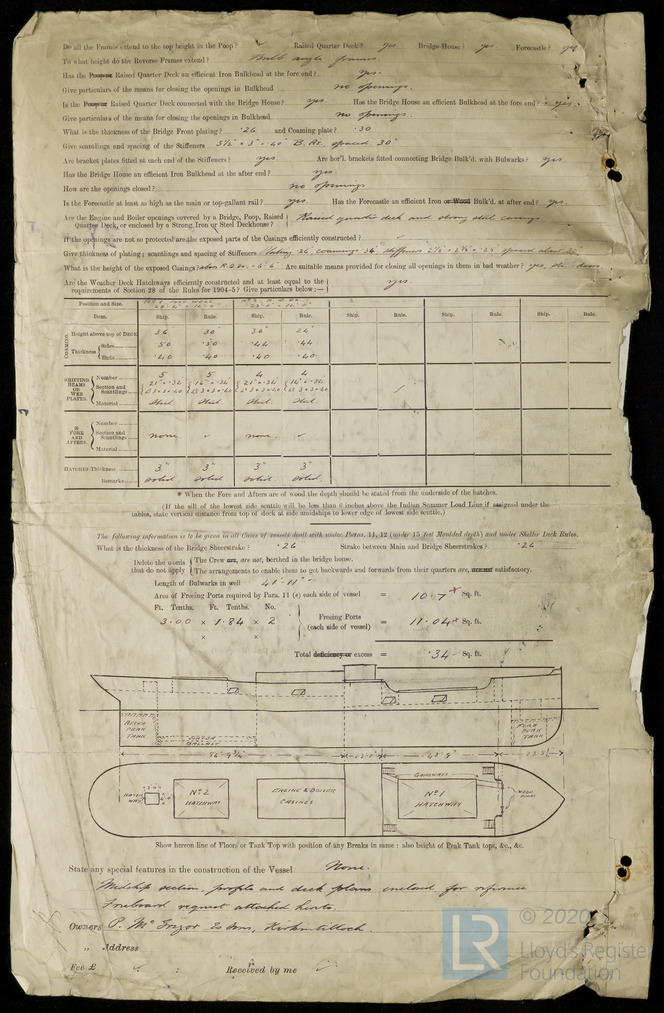 Do all the Frames extend to the top height in the Poop? Raised Quarter Deck? yes Bridge House? yes Forecastle? yes
To what height do the Reverse Frames extend? Bulb angle frames
Has the Poop or Raised Quarter Deck an efficient Iron Bulkhead at the fore end? yes.
Give particulars of the means for closing the openings in Bulkhead no openings.
Is the Poop or Raised Quarter Deck connected with the Bridge House? yes. Has the Bridge House an efficient Bulkhead at the fore end? yes.
Give particulars of the means for closing the openings in Bulkhead no openings.
What is the thickness of the Bridge Front plating? ·26 and Coaming plate? ·30
Give scantlings and spacing of the Stiffeners 5½" × 3" × 40" B.As. spaced 30"
Are bracket plates fitted at each end of the Stiffeners? yes Are hor'l. brackets fitted connecting Bridge Bulk'd. with Bulwarks? yes.
Has the Bridge House an efficient Iron Bulkhead at the after end? yes.
How are the openings closed? no openings
Is the Forecastle at least as high as the main or top-gallant rail? yes. Has the Forecastle an efficient Iron or Wood Bulk'd. at after end? yes.
Are the Engine and Boiler openings covered by a Bridge, Poop, Raised Quarter Deck, or enclosed by a Strong Iron or Steel Deckhouse? Raised quarter deck and strong steel casings
If the openings are not so protected are the exposed parts of the Casings efficiently constructed?
Give thickness of plating; scantlings and spacing of Stiffeners Plating 26" coamings 36" stiffeners
What is the height of the exposed Casings? Are suitable means provided for closing all openings in them in bad weather? yes, doors
Are the Weather Deck Hatchways efficiently constructed and at least equal to the requirements of Section 28 of the Rules for 1904-5? Give particulars below:— yes.
Position and Size.
Item. Ship. Rule. Ship. Rule. Ship. Rule. Ship. Rule.
COAMING Height above top of DECK 36 30 30" 24"
Thickness Sides 50 ·50 ·44 ·44
Ends ·40 ·40 ·40 ·40
SHIFTING BEAMS OR WEB PLATES. Number 5 5 4 4
Section and Scantlings
Material Steel. Steel. Steel. Steel.
* FORE AND AFTERS. Number
Section and Scantlings none none
Material
HATCHES Thickness 3" 3" 3" 3"
Remarks solid. solid. solid. solid.
* When the Fore and Afters are of wood the depth should be stated from the underside of the hatches.
(If the sill of the lowest side scuttle will be less than 6 inches above the Indian Summer Load Line if assigned under the
tables, state vertical distance from top of deck at side amidships to lower edge of lowest side scuttle.)
The following information is to be given in all Cases of vessels dealt with under Paras. 11, 12 (under 15 feet Moulded depth) and under Shelter Deck Rules.
What is the thickness of the Bridge Sheerstrake? ·26 Strake between Main and Bridge Sheerstrakes? ·26
Delete the words that do not apply The Crew are, are not, berthed in the bridge house.
The arrangements to enable them to get backwards and forwards from their quarters are, are not satisfactory.
Length of Bulwarks in well 41'·11"
Area of Freeing Ports required by Para. 11 (e) each side of vessel = 10·7 Sq. ft.
Ft. Tenths. Ft. Tenths. No.
3·00 × 1·84 × 2 Freeing Ports (each side of vessel) = 11·04 Sq. ft.
× ×
Total deficiency or excess = ·34 Sq. ft.
AFTER PEAK TANK
WATER BALLAST
FORE PEAK TANK
HATCH WAY
No 2 HATCHWAY
ENGINE & BOILER CASINGS
GANGWAY
No 1 HATCHWAY
Show hereon line of Floors or Tank Top with position of any Breaks in same: also height of Peak Tank tops, &c., &c.
State any special features in the construction of the Vessel None.
Midship section, profile and deck plans enclosed for reference
Freeboard request attached hereto.
Owners P. McGregor & Sons, Kirkintilloch.
„ Address
Fee £ : Received by me
LR © 2020
Lloyd's Register
Foundation